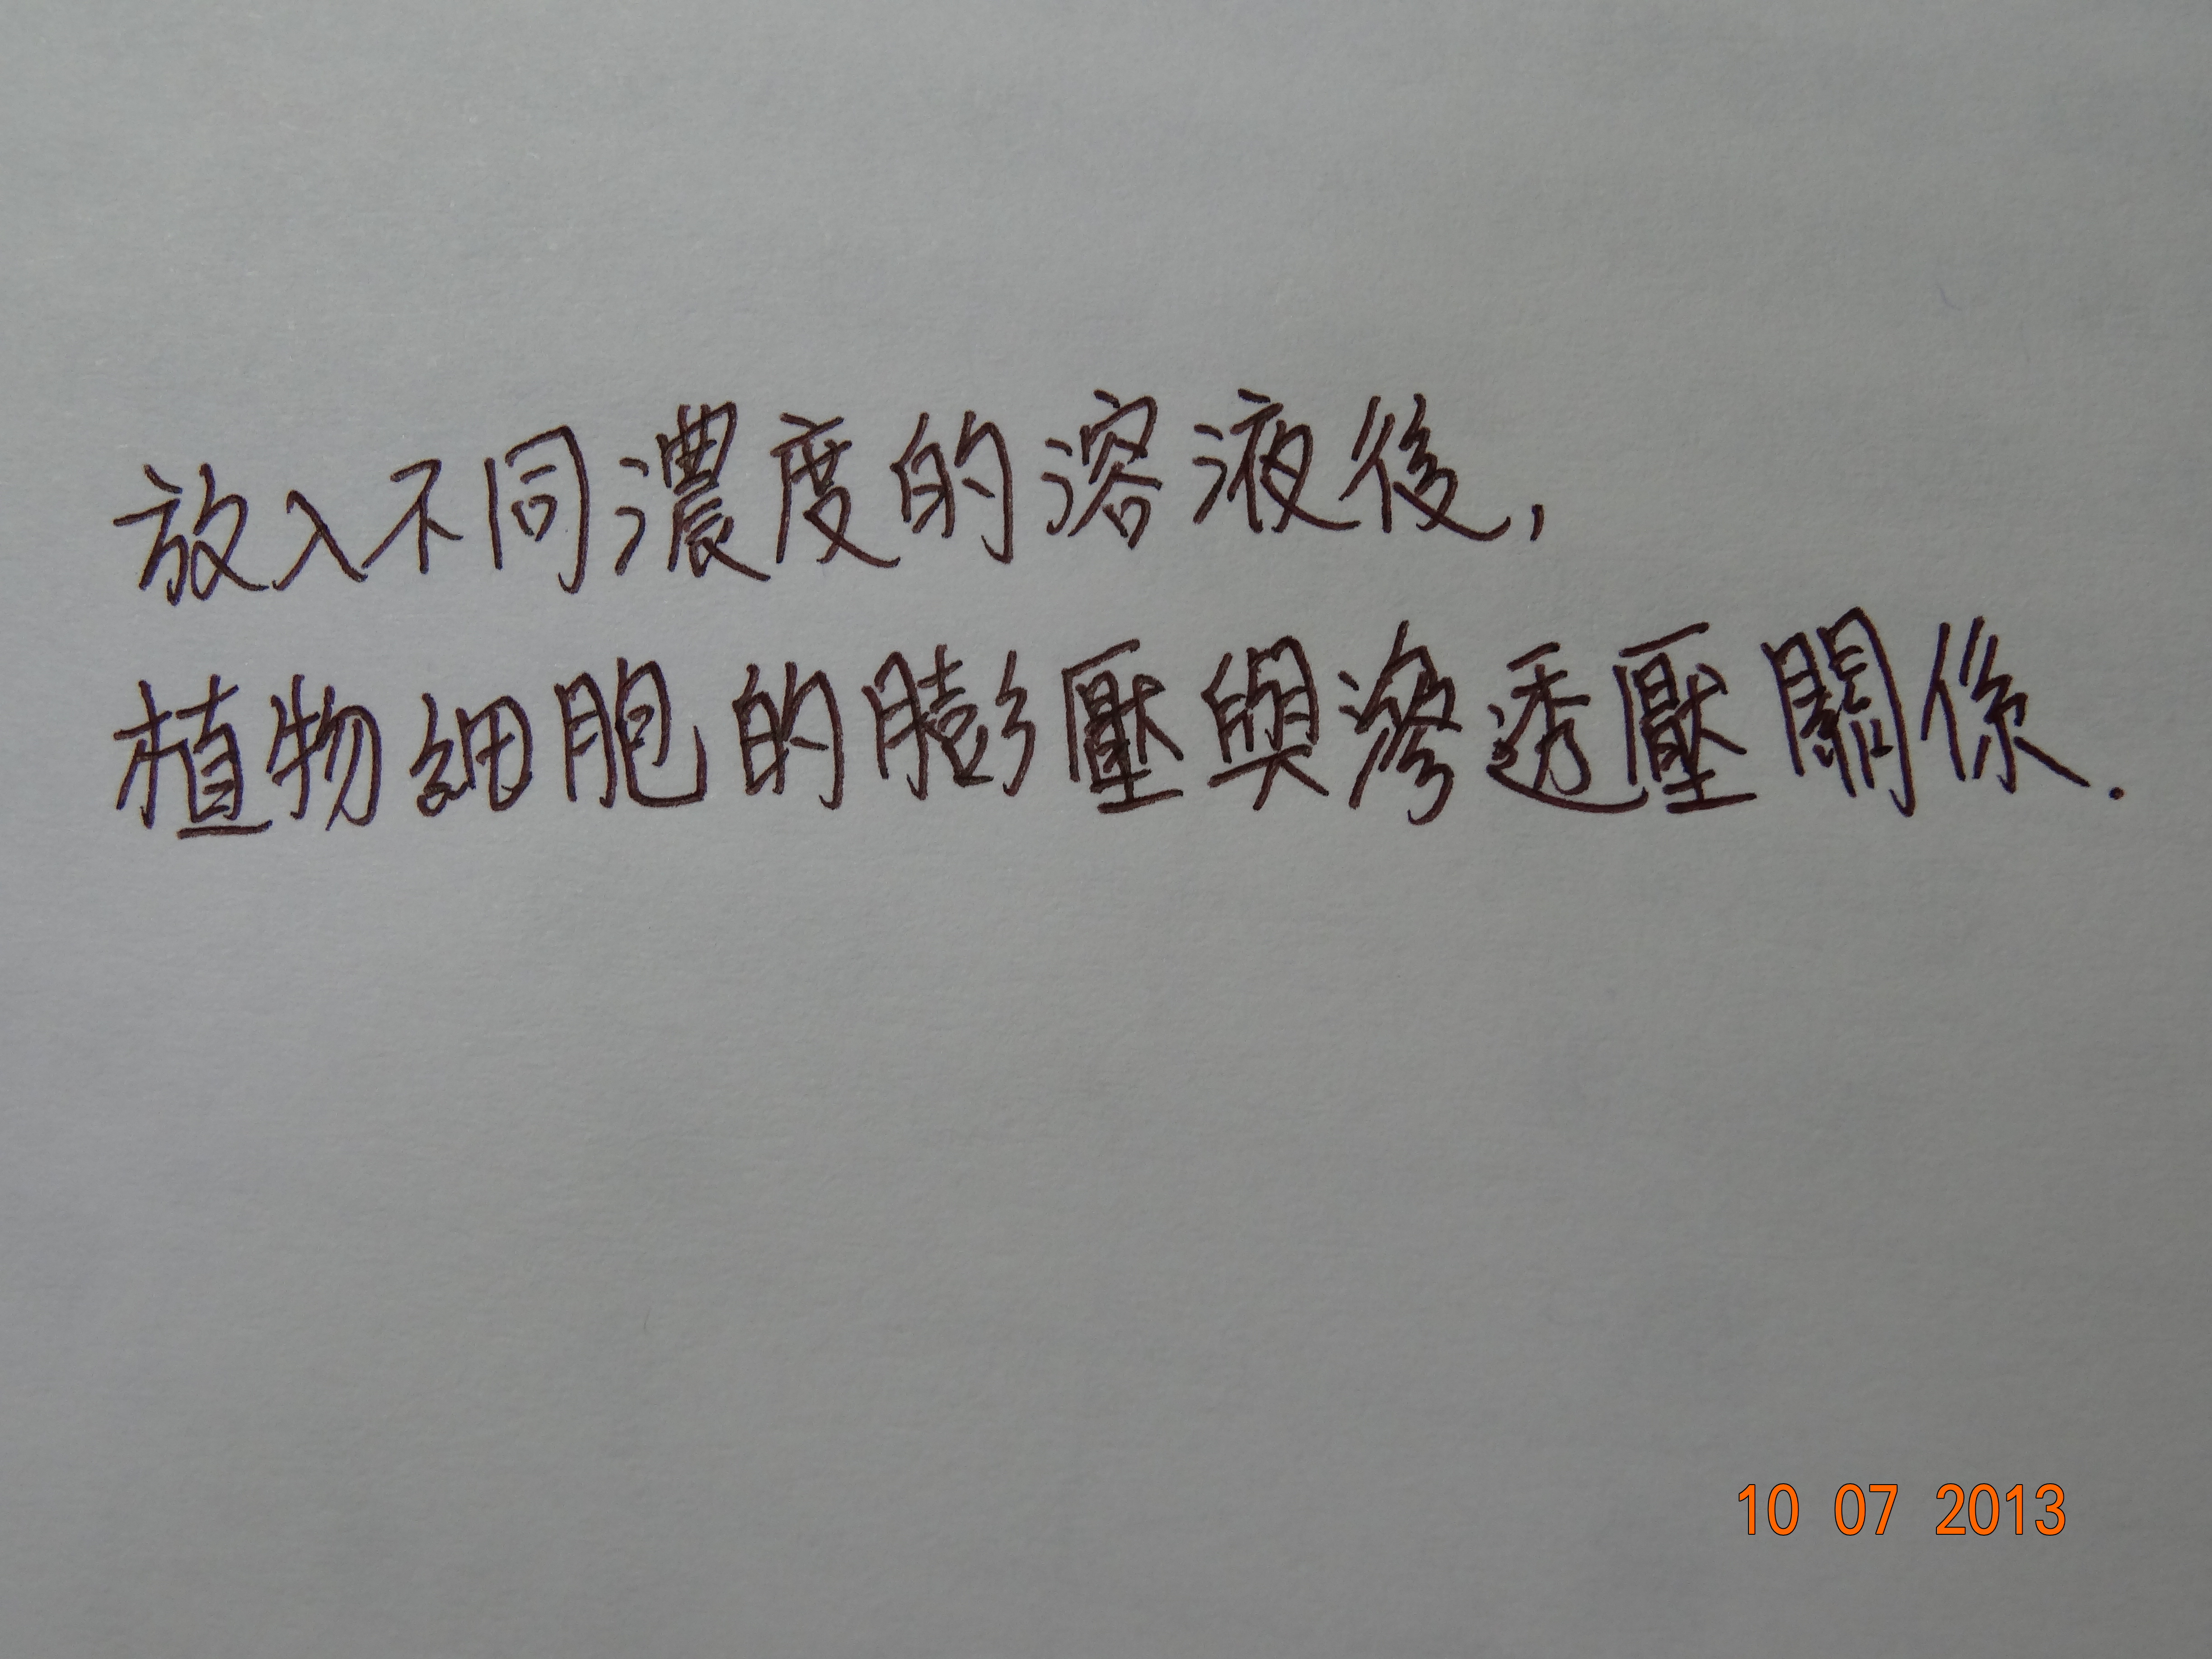 放入不同濃度的溶液後,
植物細胞的膨壓與滲透壓關係.
10 07 2013